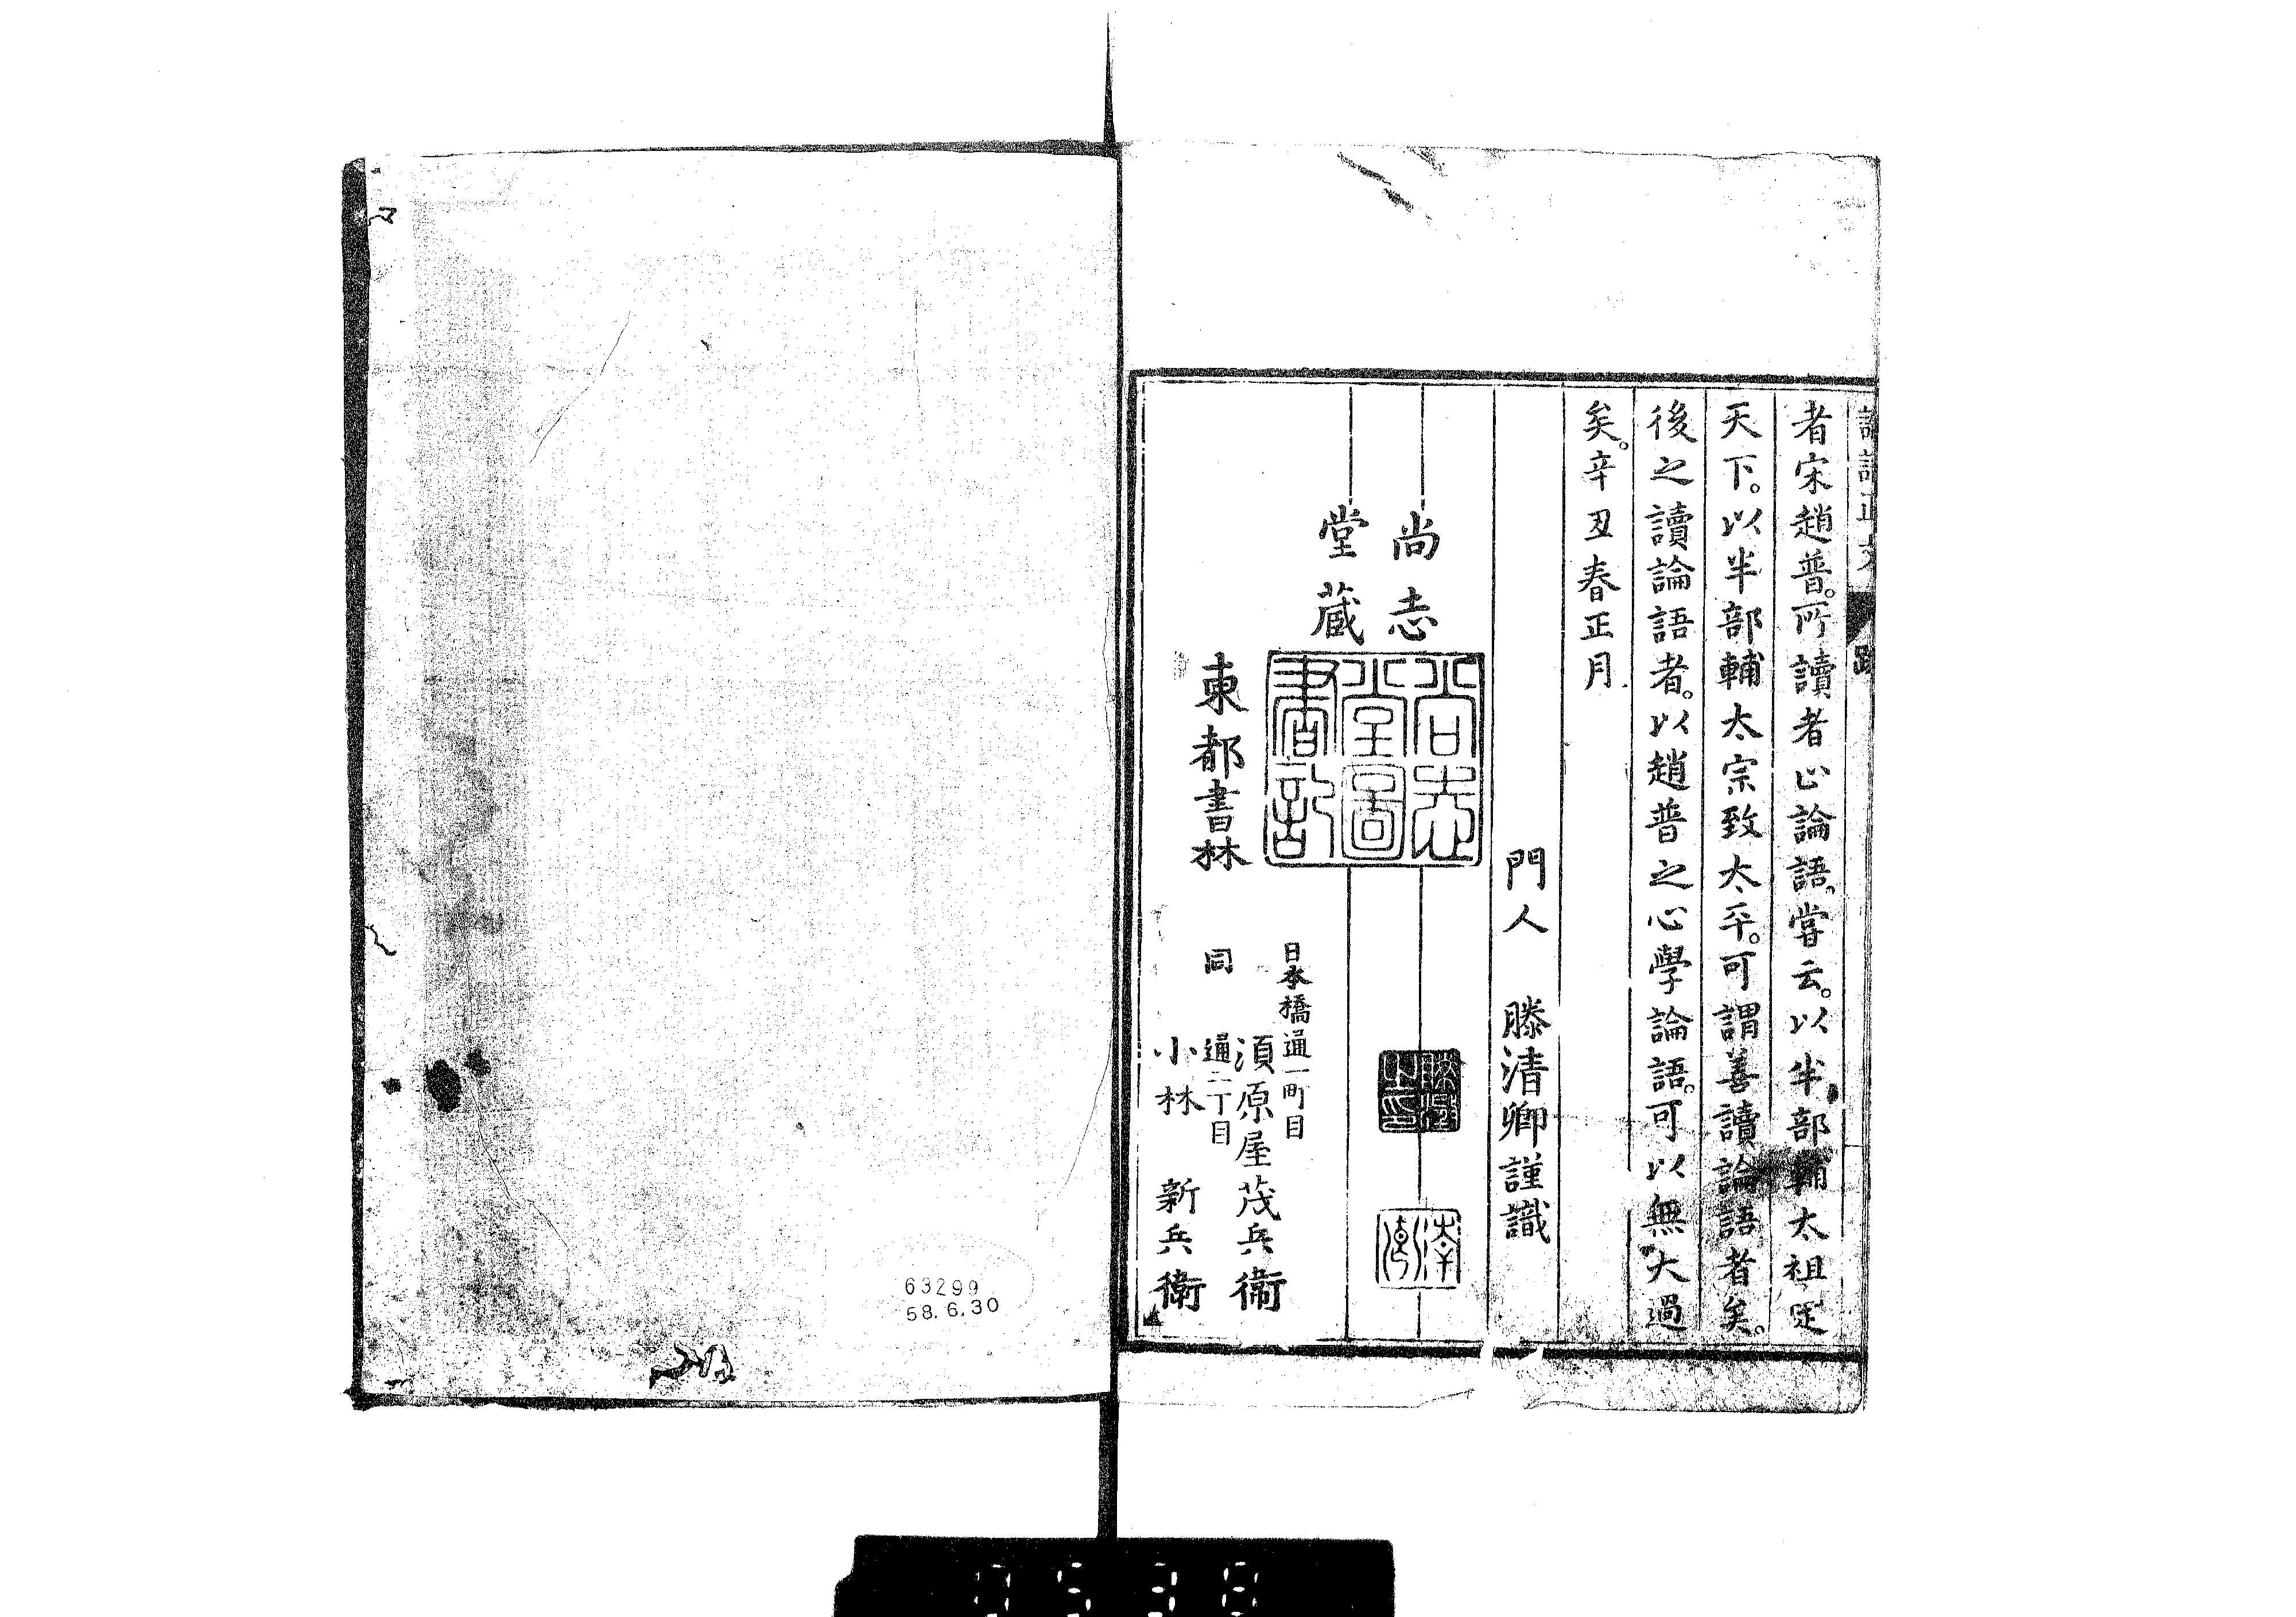 論語正文 跋
者宋趙普。所讀者止論語。嘗云。以半部輔太祖定
天下。以半部輔太宗致太平。可謂善讀論語者矣。
後之讀論語者。以趙普之心學論語。可以無大過
矣。辛丑春正月
門人 滕清卿謹識
尚志
堂藏
尚志
堂圖
書記
東都書林
日本橋通一町目
須原屋茂兵衛
同 通二丁目
小林 新兵衛
63299
58.6.30
0538